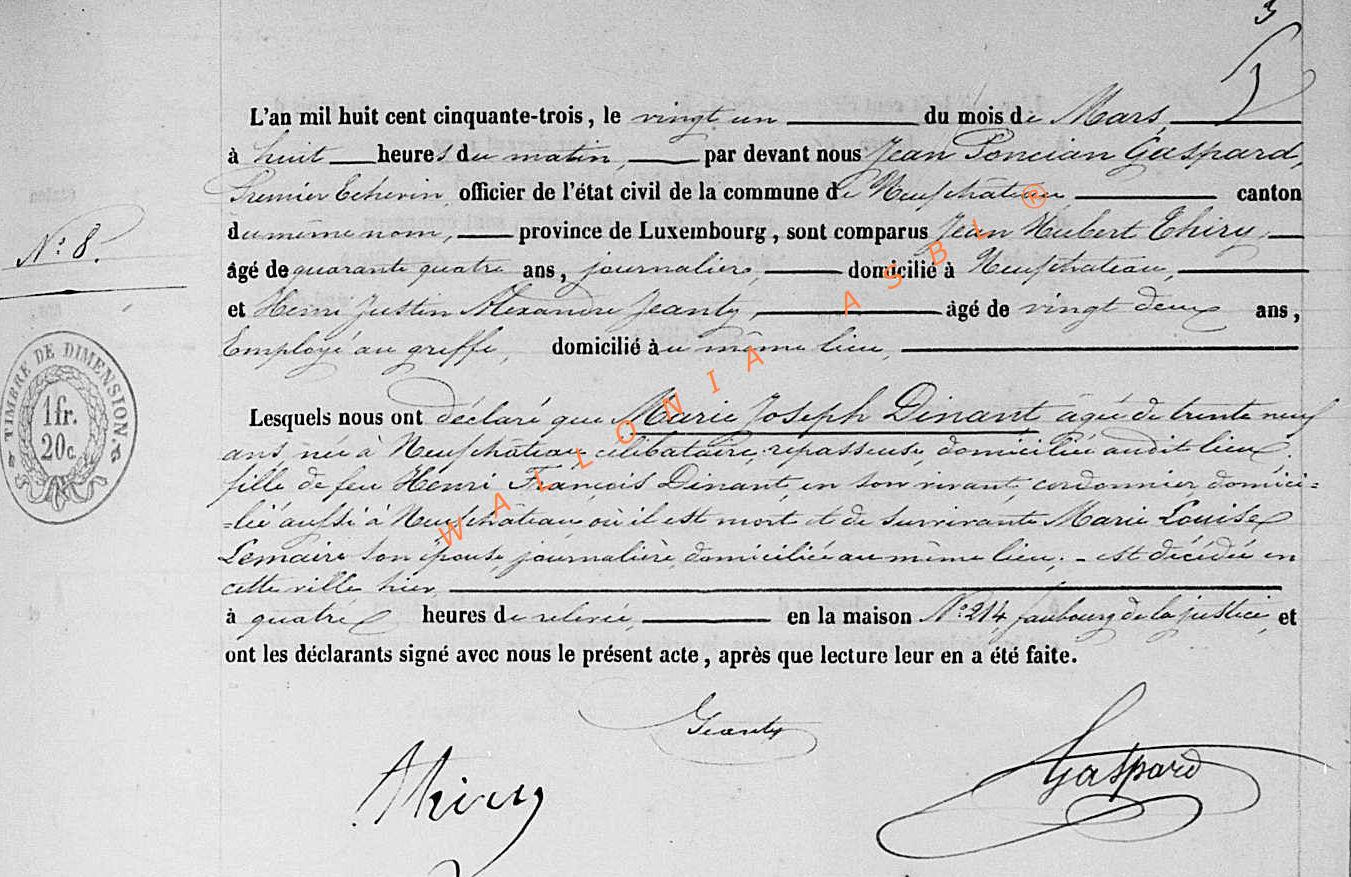 3
L'an mil huit cent cinquante-trois, le vingt un du mois de Mars
à huit heures du matin, par devant nous Jean Poncian Gaspard,
Premier Echevin, officier de l'état civil de la commune de Neufchâteau, canton
du même nom, province de Luxembourg, sont comparus Jean Hubert Thiry,
N° 8.
âgé de quarante quatre ans, journalier, domicilié à Neufchateau,
et Henri Justin Alexandre Jeanty, âgé de vingt deux ans,
Employé au greffe, domicilié au même lieu,
TIMBRE DE DIMENSION.
1 fr.
20 c.
Lesquels nous ont déclaré que Marie Joseph Dinant âgée de trente neuf
ans née à Neufchâteau célibataire, repasseuse, domiciliée audit lieu,
fille de feu Henri François Dinant, en son vivant, cordonnier, domici-
-lié aussi à Neufchâteau où il est mort et de survivante Marie Louise
Lemaire son épouse, journalière, domiciliée au même lieu, - est décédée en
cette ville hier,
à quatre heures de relevée, en la maison N° 214 faubourg de la justice, et
ont les déclarants signé avec nous le présent acte, après que lecture leur en a été faite.
Jeanty
Thiry
Gaspard
WALLONIA ASBL ®